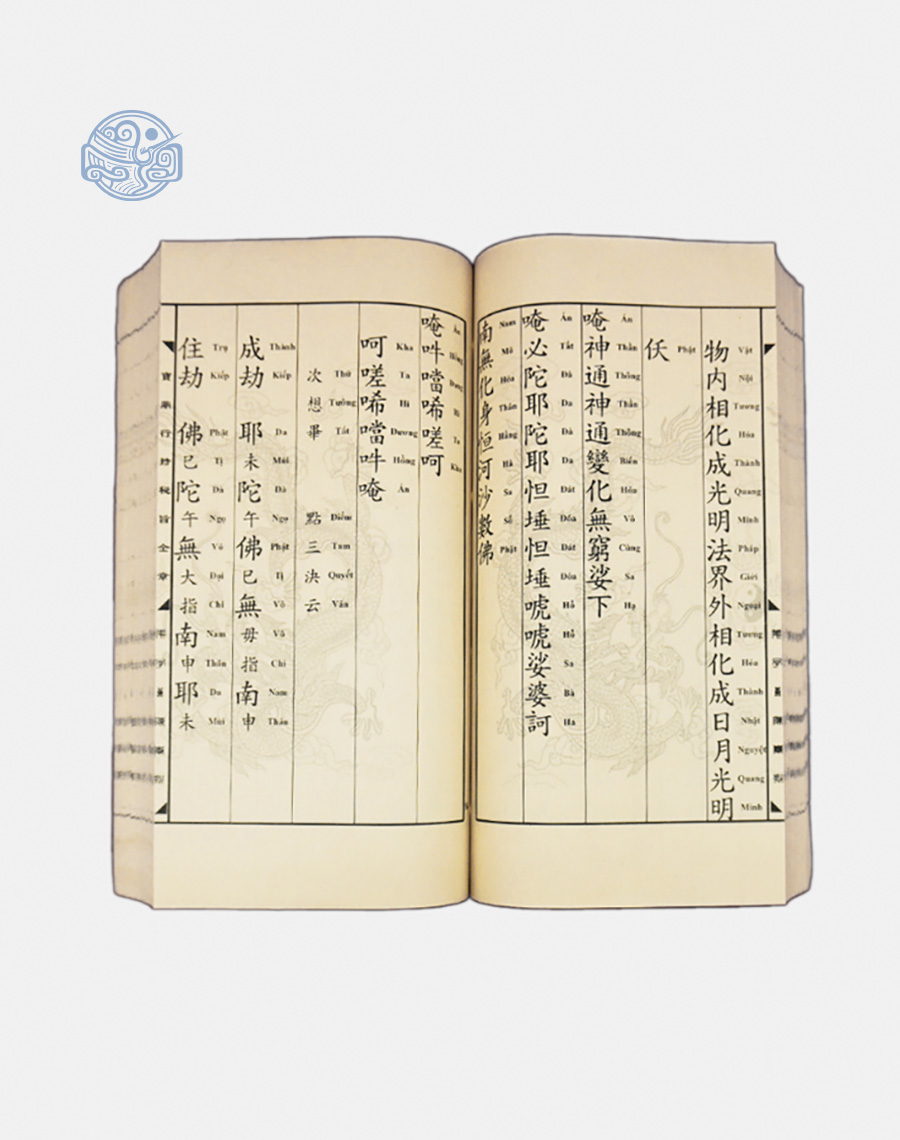 物内相化成光明法界外相化成日月光明
Vật Nội Tương Hóa Thành Quang Minh Pháp Giới Ngoại Tương Hóa Thành Nhật Nguyệt Quang Minh
仸
Phật
唵神通神通變化無窮娑下
Án Thần Thông Thần Thông Biến Hóa Vô Cùng Sa Hạ
唵必陀耶陀耶怛埵怛埵唬唬娑婆訶
Án Tất Đà Da Đà Da Đát Đóa Đát Đóa Hổ Hổ Sa Bà Ha
南無化身恒河沙數佛
Nam Mô Hóa Thân Hằng Hà Sa Số Phật
唵吽噹唏嗟呵
Án Hồng Dương Hi Ta Kha
呵嗟唏噹吽唵
Kha Ta Hi Dương Hồng Án
次想畢 點三決云
Thứ Tưởng Tất Điểm Tam Quyết Vân
成劫 耶未陀午佛巳無毋指南申
Thành Kiếp Da Mùi Đà Ngọ Phật Tị Vô Vô Chỉ Nam Thân
住劫 佛巳陀午無大指南申耶未
Trụ Kiếp Phật Tị Đà Ngọ Vô Đại Chỉ Nam Thân Da Mùi